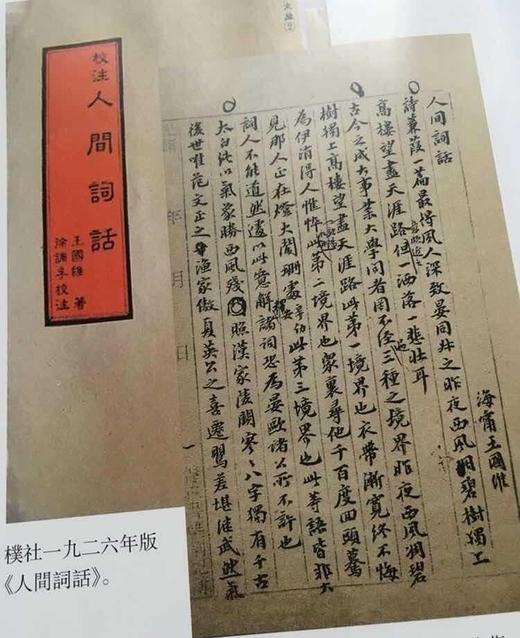 校注
人間詞話
王國維 著
徐調孚校注
人間詞話
海甯王國維
詩蒹葭一篇最得風人深致晏同叔之昨夜西風凋碧樹獨上
高樓望盡天涯路但一洒落一悲壯耳
古今之成大事業大學問者罔不經過三種之境界昨夜西風凋碧
樹獨上高樓望盡天涯路此第一境界也衣帶漸寬終不悔
為伊消得人憔悴此第二境界也眾裏尋他千百度回頭驀
見那人正在燈火闌珊處此第三境界也此等語皆非大
詞人不能道然遽以此意解諸詞恐為晏歐諸公所不許也
太白純以氣象勝西風殘照漢家陵闕寥寥八字獨有千古
後世唯范文正之漁家傲夏英公之喜遷鶯差堪繼武然氣
年 月 日
樸社一九二六年版
《人間詞話》。